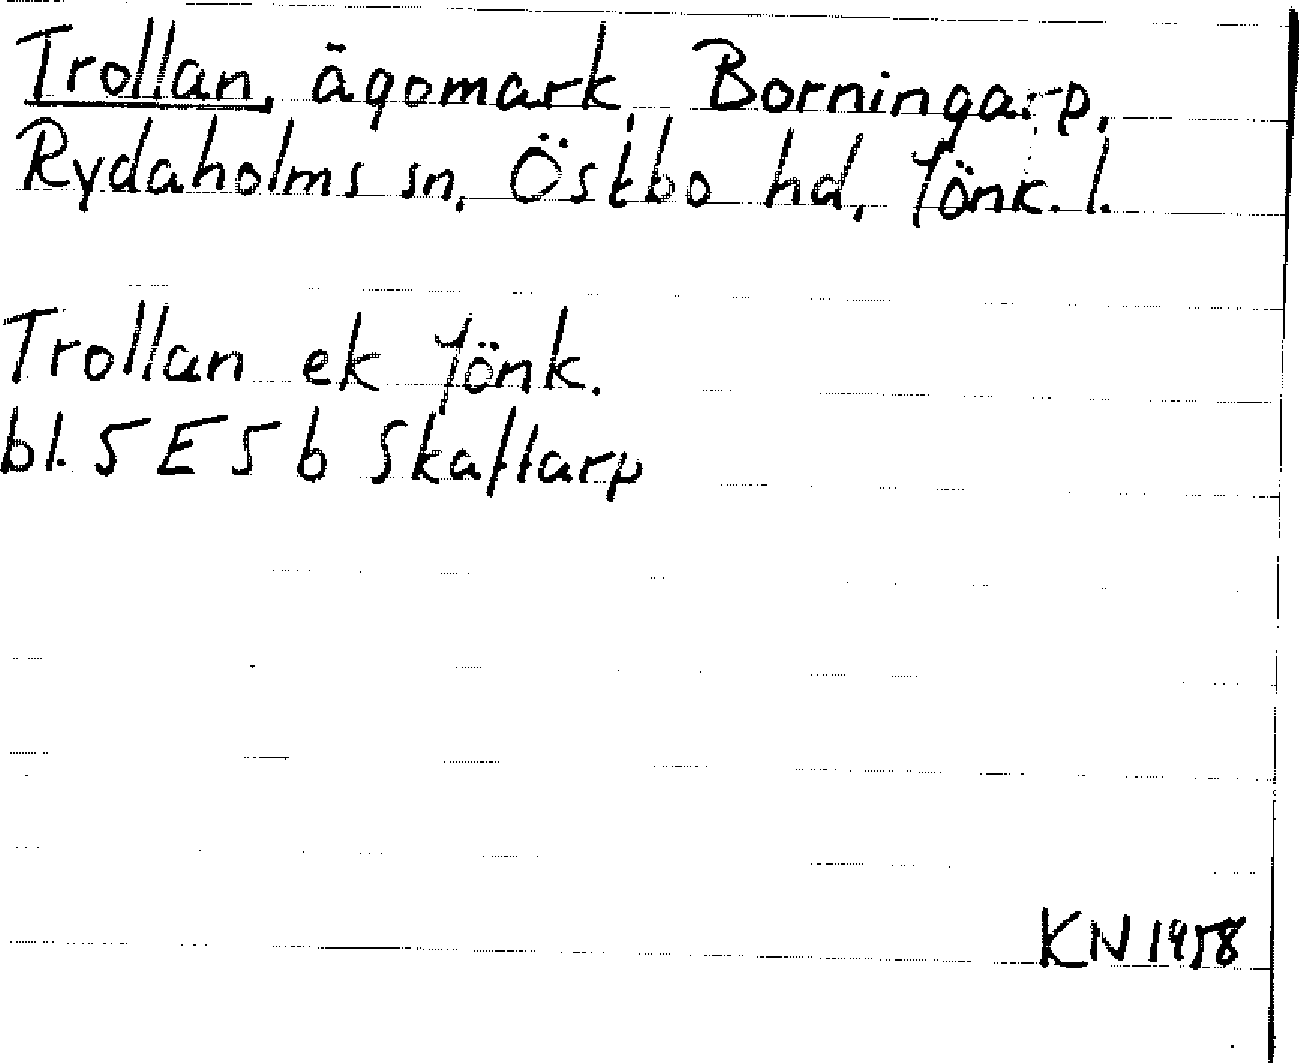 Trollan, ägomark, Borningarp,
Rydaholms sn, Östbo hd, Jönk. l.
Trollan ek Jönk.
bl. 5 E 5 b Skaftarp
KN 1958